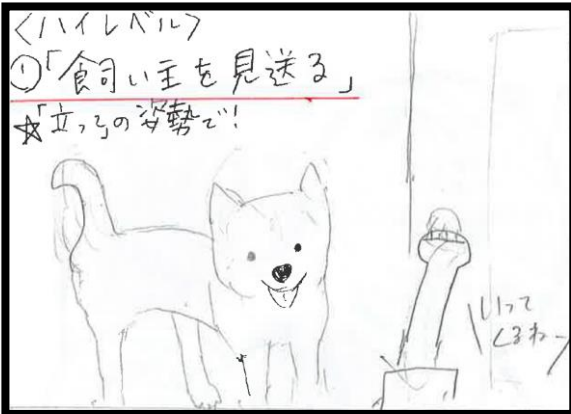 <ハイレベル>
①「飼い主を見送る」
☆「立つ」の姿勢で!
いって
くるわー